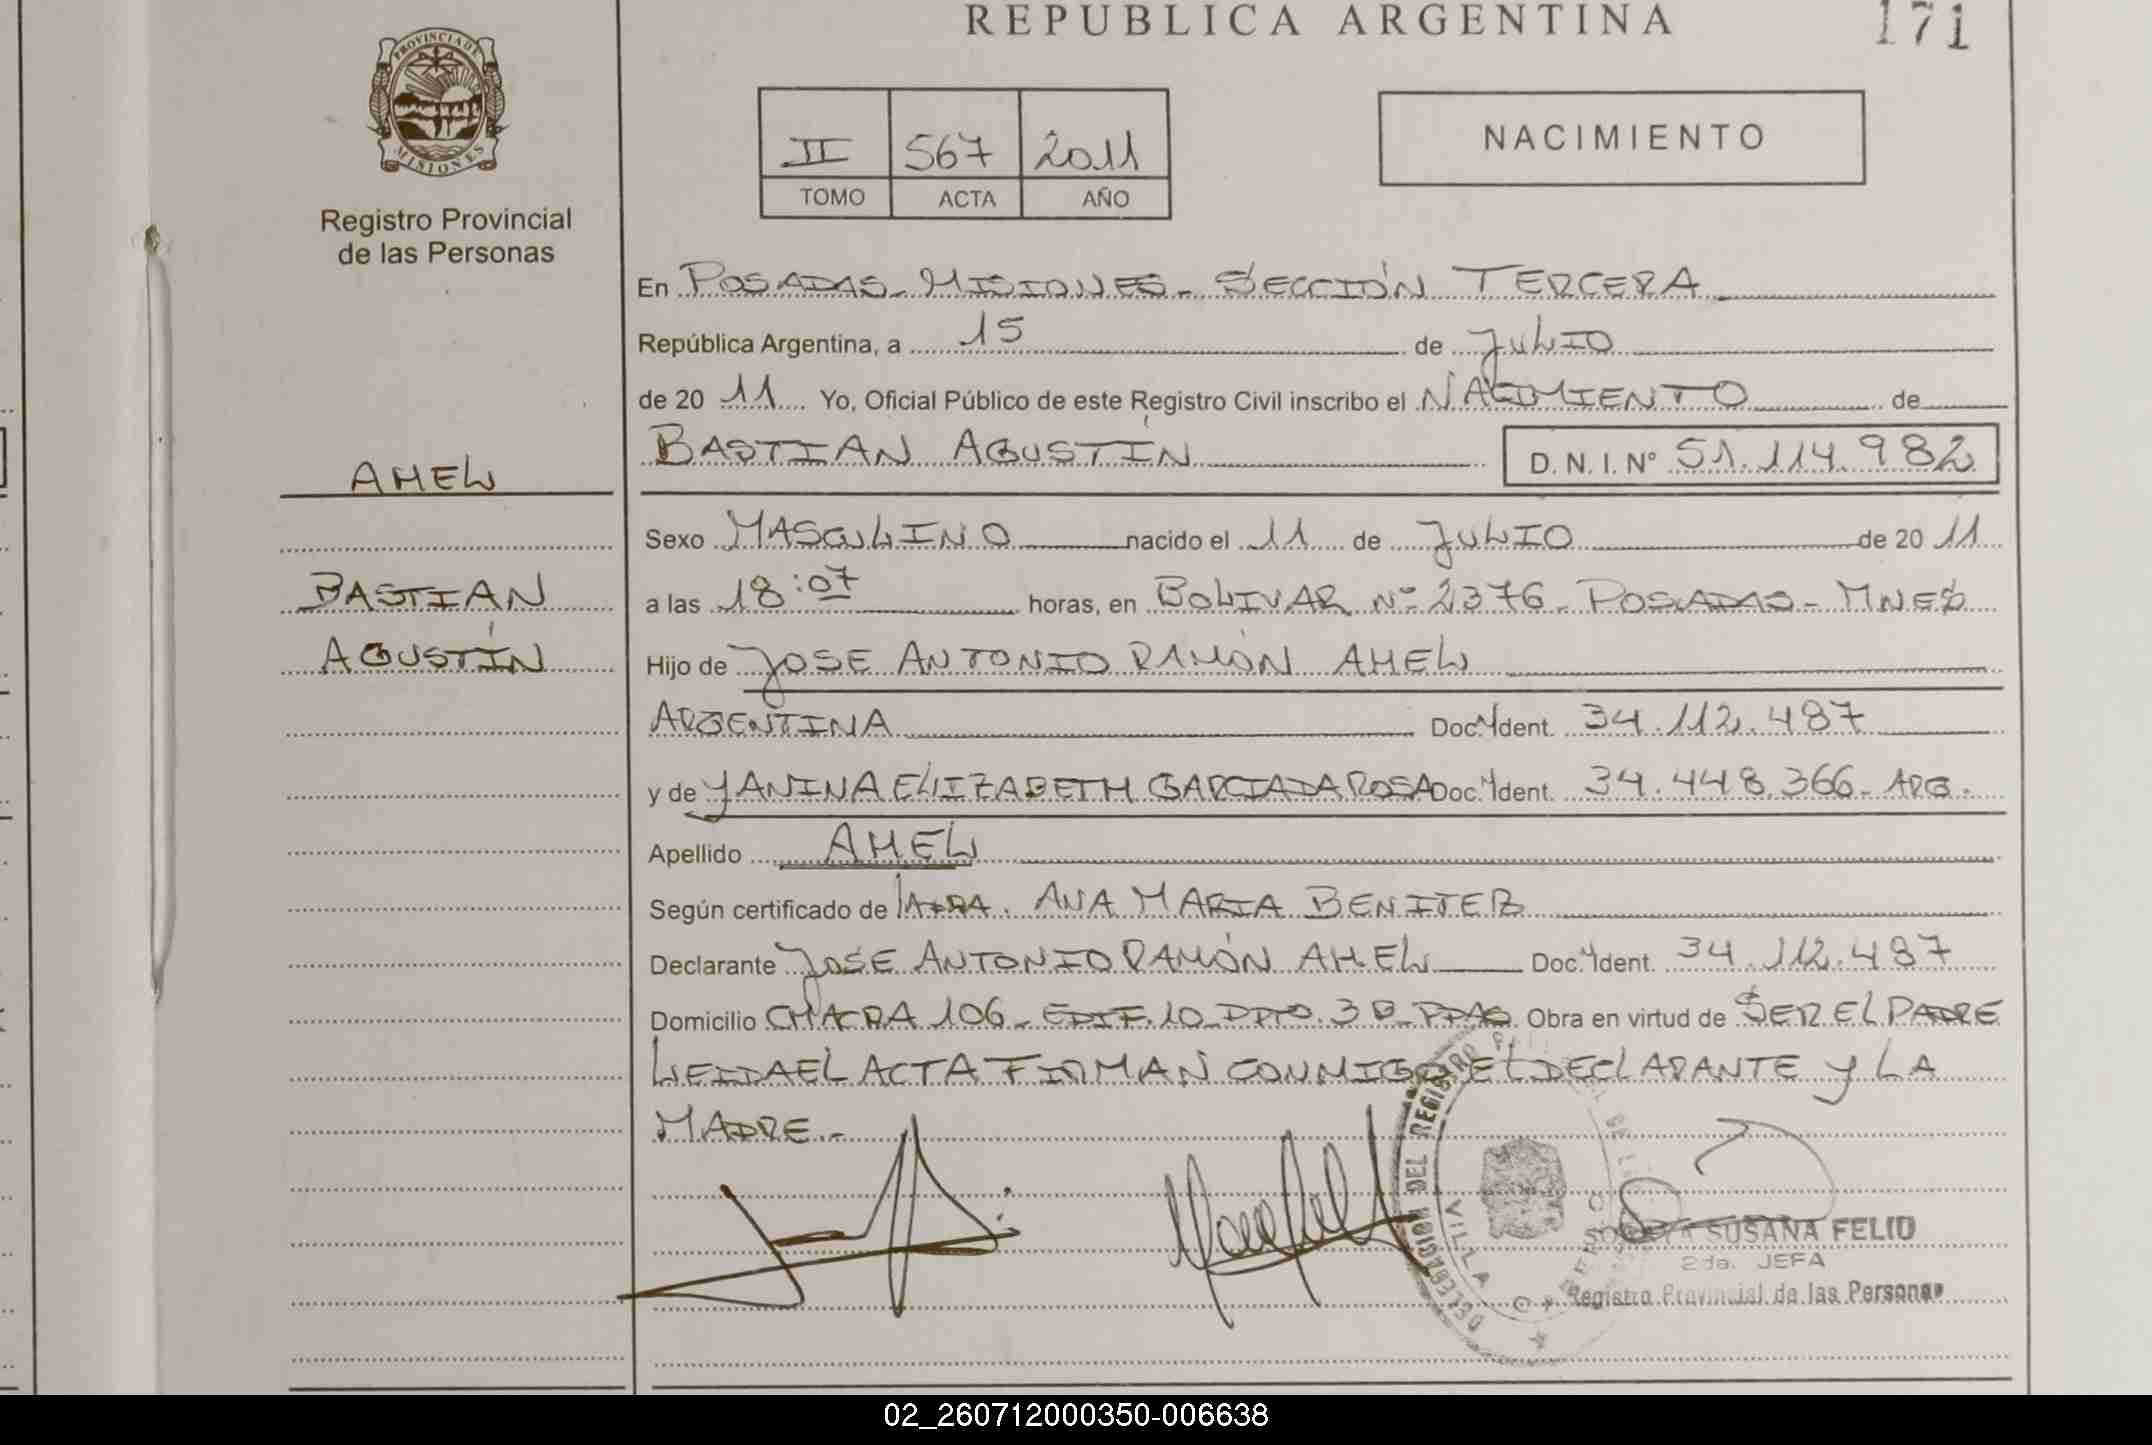 REPUBLICA ARGENTINA
171
PROVINCIA DE
MISIONES
Registro Provincial
de las Personas
II 567 2011
TOMO ACTA AÑO
NACIMIENTO
En POSADAS - MISIONES - SECCIÓN TERCERA
República Argentina, a 15 de JULIO
de 20 11 Yo, Oficial Público de este Registro Civil inscribo el NACIMIENTO de
BASTIAN AGUSTÍN D.N.I. Nº 51.114.982
AMEL
BASTIAN
AGUSTÍN
Sexo MASCULINO nacido el 11 de JULIO de 20 11
a las 18:07 horas, en BOLIVAR Nº 2376 - POSADAS - MNES
Hijo de JOSE ANTONIO RAMÓN AMEL
ARGENTINA Doc. Ident. 34.112.487
y de YANINA ELIZABETH GARCIA DA ROSA Doc. Ident. 34.448.366 - ARG.
Apellido AMEL
Según certificado de ANA MARIA BENITEZ
Declarante JOSÉ ANTONIO RAMÓN AMEL Doc. Ident. 34.112.487
Domicilio CHACRA 106 - EDIF. 10 - DPTO. 3 B - PDAS Obra en virtud de SER EL PADRE
LEIDA EL ACTA FIRMAN CONMIGO EL DECLARANTE Y LA
MADRE.-
DEL REGISTRO
VILLA
SUSANA FELIO
2da. JEFA
Registro Provincial de las Personas
02_260712000350-006638